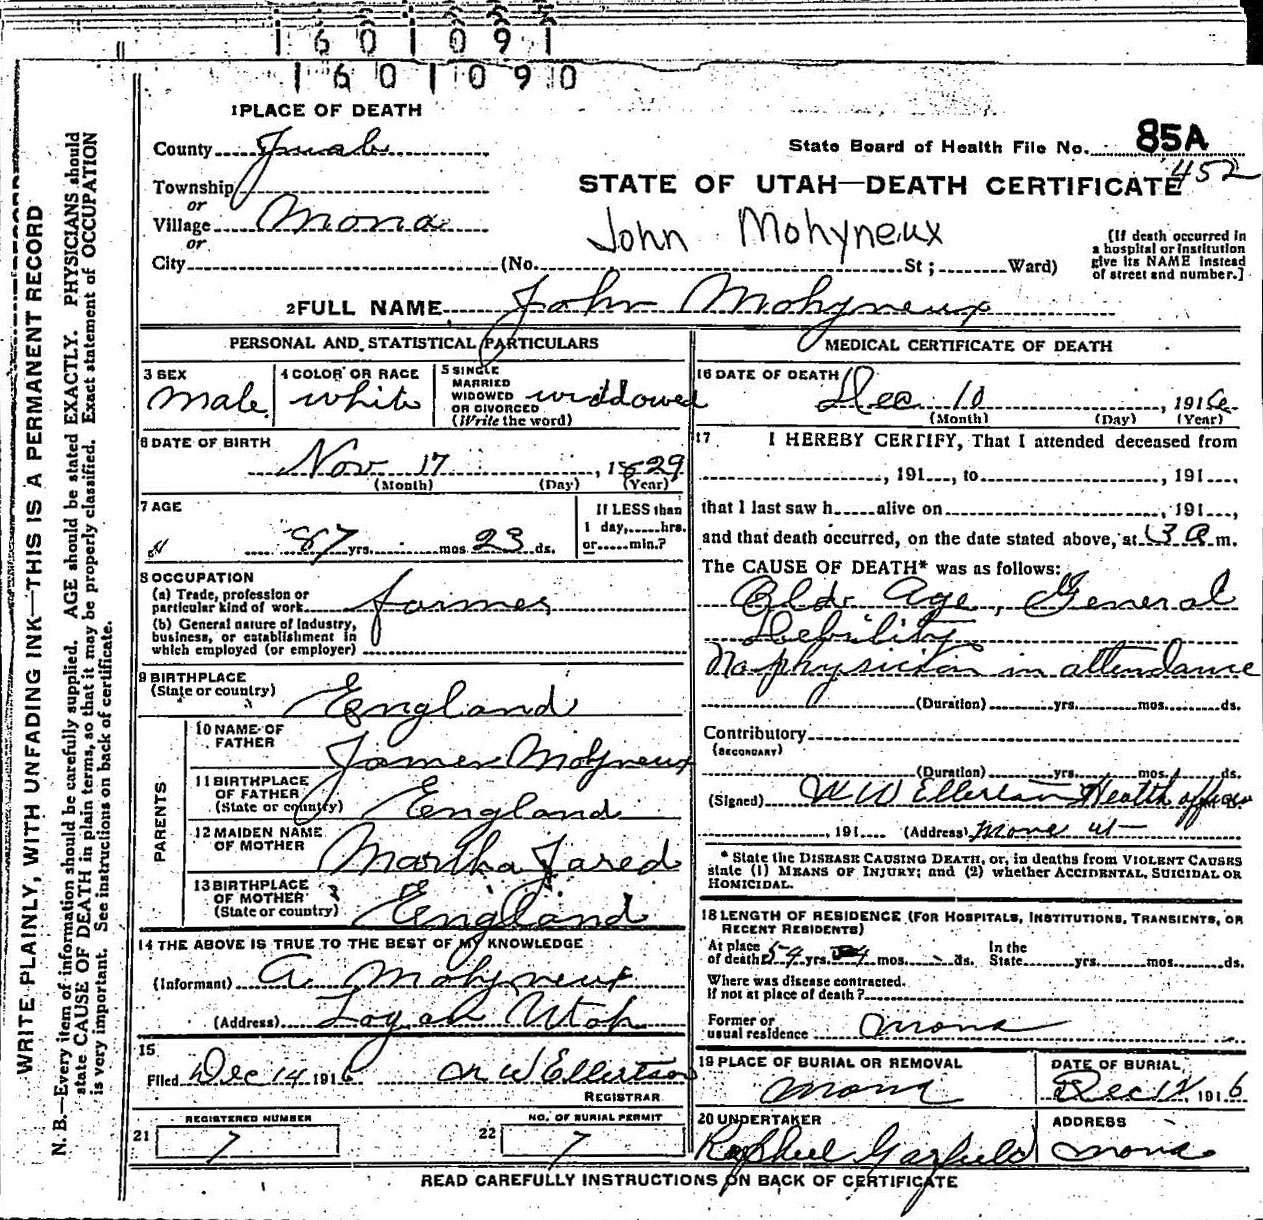 1601091
1601090
1 PLACE OF DEATH
County Juab
State Board of Health File No. 85A
452
Township
or
Village Mona
or
City (No. St; Ward)
STATE OF UTAH—DEATH CERTIFICATE
John Mohyneux
(If death occurred in
a hospital or institution
give its NAME instead
of street and number.]
2 FULL NAME John Mohyneux
PERSONAL AND STATISTICAL PARTICULARS
3 SEX
male
4 COLOR OR RACE
white
5 SINGLE
MARRIED
WIDOWED
OR DIVORCED
(Write the word)
widdowed
6 DATE OF BIRTH
Nov 17, 1829
(Month) (Day) (Year)
7 AGE
87 yrs. mos 23 ds.
If LESS than
1 day, hrs.
or min.?
8 OCCUPATION
(a) Trade, profession or
particular kind of work farmer
(b) General nature of industry,
business, or establishment in
which employed (or employer)
9 BIRTHPLACE
(State or country)
England
PARENTS
10 NAME OF
FATHER
James Mohyneux
11 BIRTHPLACE
OF FATHER
(State or country)
England
12 MAIDEN NAME
OF MOTHER
Martha Jared
13 BIRTHPLACE
OF MOTHER
(State or country)
England
14 THE ABOVE IS TRUE TO THE BEST OF MY KNOWLEDGE
(Informant) A. Mohyneux
(Address) Logan Utah
15
Filed Dec 14 1916 W Ellertson
REGISTRAR
REGISTERED NUMBER
21 7
NO. OF BURIAL PERMIT
22 7
MEDICAL CERTIFICATE OF DEATH
16 DATE OF DEATH
Dec 10, 1916
(Month) (Day) (Year)
17 I HEREBY CERTIFY, That I attended deceased from
, 191 , to , 191 ,
that I last saw h alive on , 191 ,
and that death occurred, on the date stated above, at 3 a m.
The CAUSE OF DEATH* was as follows:
Old Age, General
Debility
No physician in attendance
(Duration) yrs. mos. ds.
Contributory
(SECONDARY)
(Duration) yrs. mos. ds.
(Signed) W W Ellertson Health officer
, 191 (Address) Mona ut
* State the DISEASE CAUSING DEATH, or, in deaths from VIOLENT CAUSES
state (1) MEANS OF INJURY; and (2) whether ACCIDENTAL, SUICIDAL OR
HOMICIDAL.
18 LENGTH OF RESIDENCE (FOR HOSPITALS, INSTITUTIONS, TRANSIENTS, OR
RECENT RESIDENTS)
At place
of death 54 yrs. mos. ds.
In the
State yrs. mos. ds.
Where was disease contracted.
if not at place of death?
Former or
usual residence Mona
19 PLACE OF BURIAL OR REMOVAL
Mona
DATE OF BURIAL
Dec 12, 1916
20 UNDERTAKER
Raphael Garfield
ADDRESS
Mona
READ CAREFULLY INSTRUCTIONS ON BACK OF CERTIFICATE
WRITE PLAINLY, WITH UNFADING INK—THIS IS A PERMANENT RECORD
N. B.—Every item of information should be carefully supplied. AGE should be stated EXACTLY. PHYSICIANS should
state CAUSE OF DEATH in plain terms, so that it may be properly classified. Exact statement of OCCUPATION
is very important. See instructions on back of certificate.